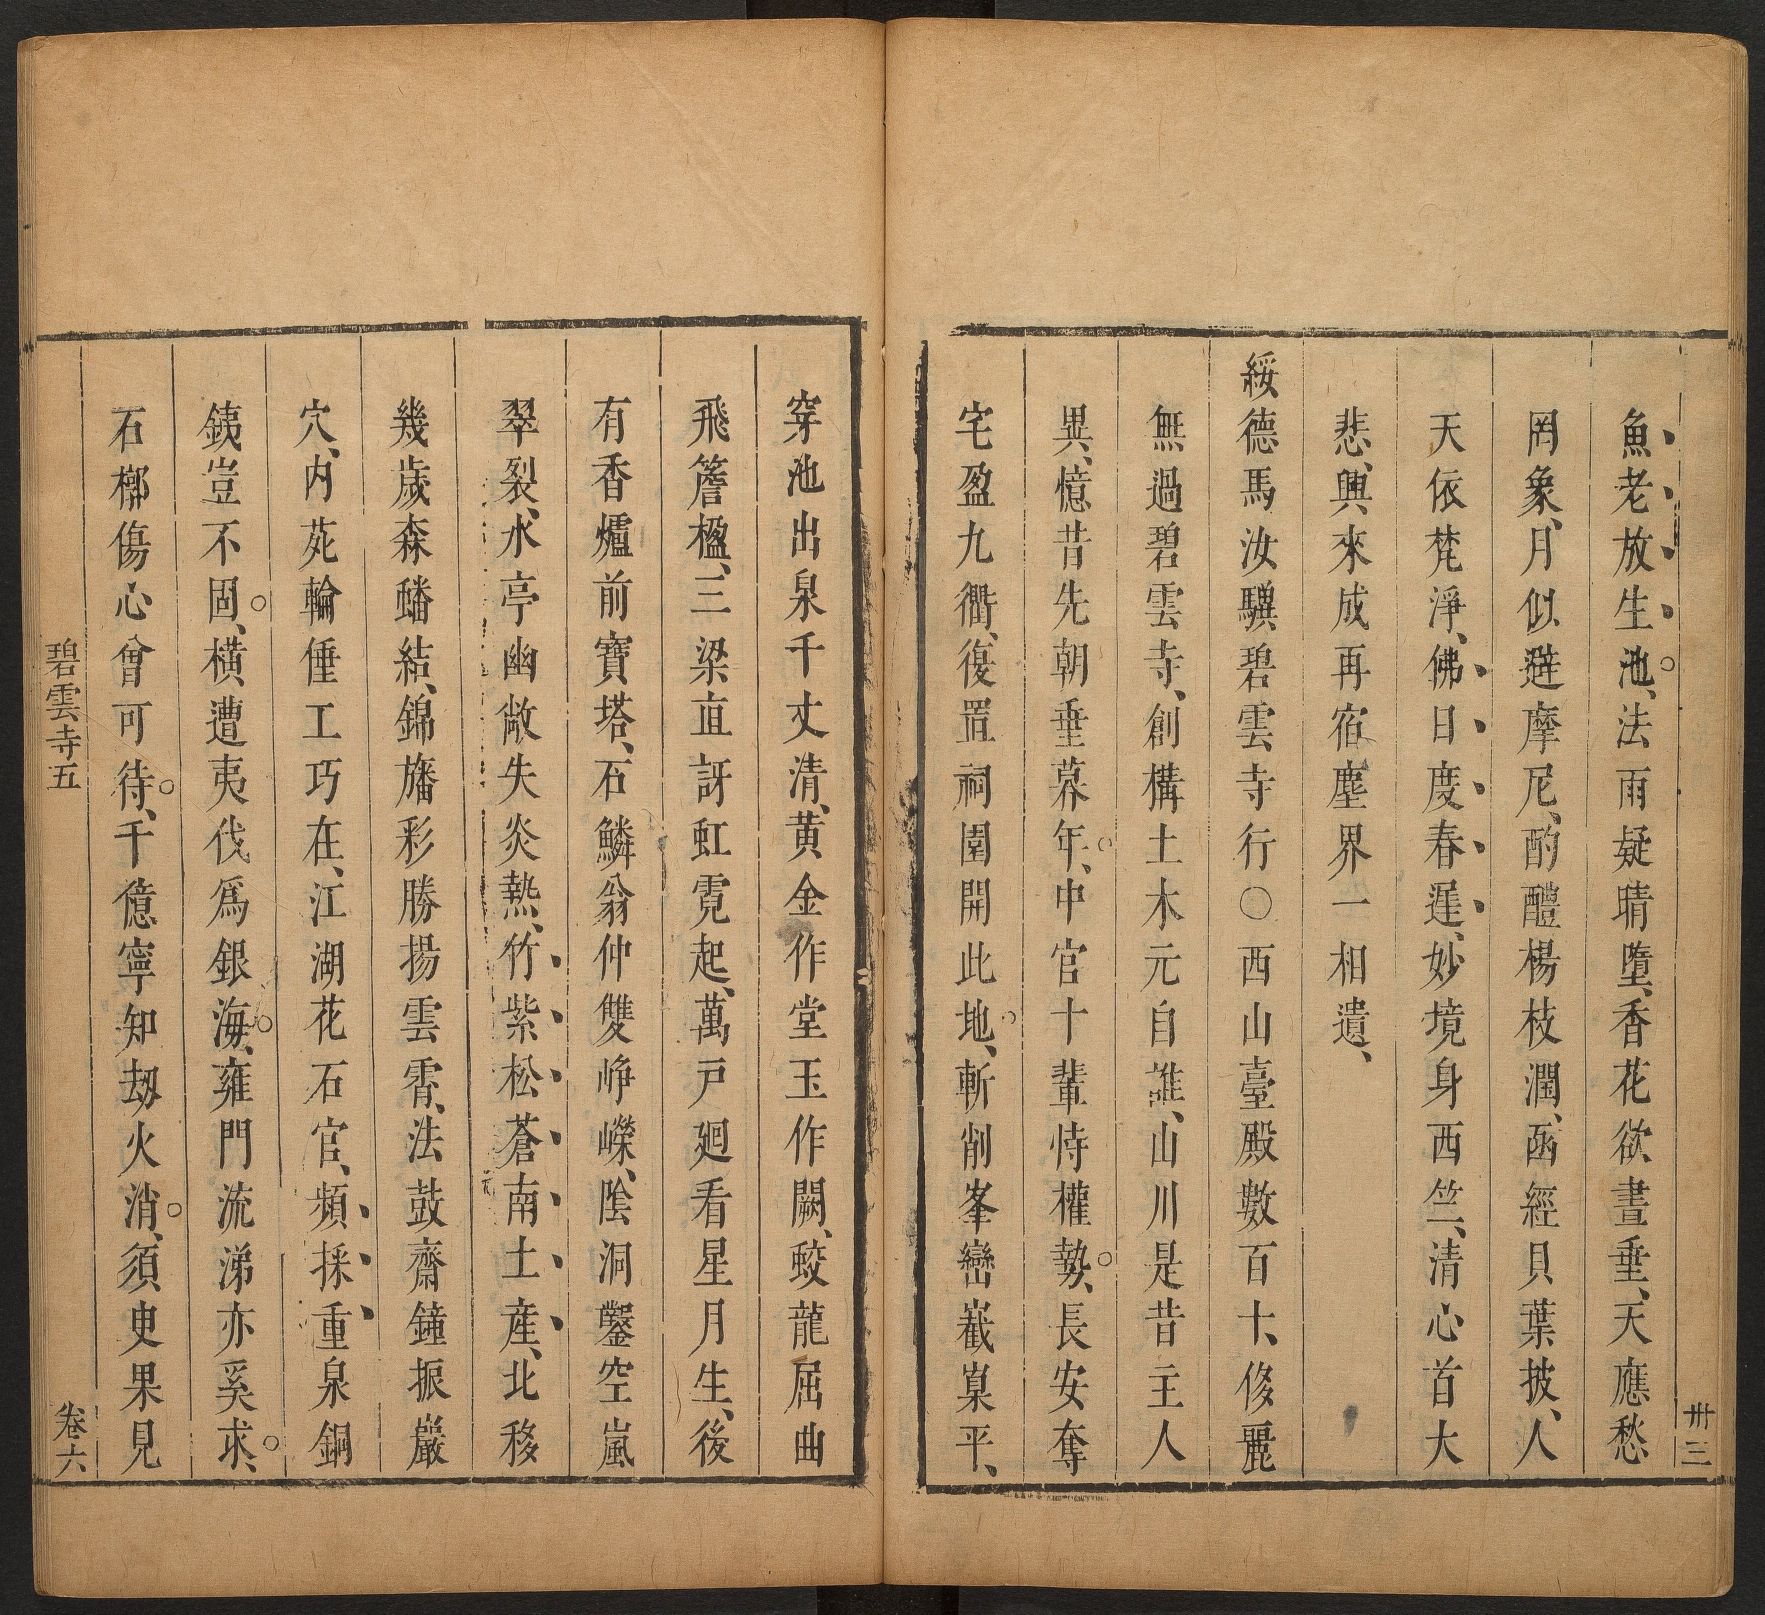 卅三
魚老放生池、法雨疑晴墮、香花欲晝垂、天應愁
罔象、月似避摩尼、酌醴楊枝潤、函經貝葉披、人
天依梵淨、佛日度春遲、妙境身西竺、清心首大
悲、興來成再宿、塵界一相遺、
綏德馬汝驥碧雲寺行○西山臺殿數百十、侈麗
無過碧雲寺、創構土木元自誰、山川是昔主人
異、憶昔先朝垂暮年、中官十輩恃權勢、長安奪
宅盈九衢、復置祠園開此地、斬削峯巒嶻嵲平、
穿池出泉千丈清、黃金作堂玉作闕、蛟龍屈曲
飛簷楹、三梁直訝虹霓起、萬戶廻看星月生、後
有香爐前寶塔、石鱗翁仲雙崢嶸、陰洞鑿空嵐
翠裂、水亭幽敞失炎熱、竹紫松蒼南土產、北移
幾歲森蟠結、錦旛彩勝揚雲霄、法鼓齋鐘振巖
穴、內苑輪倕工巧在、江湖花石官、頻採重泉銅
銕豈不固、橫遭夷伐爲銀海、雍門流涕亦奚求、
石槨傷心曾可待、千億寧知劫火消、須臾果見
碧雲寺五
卷六